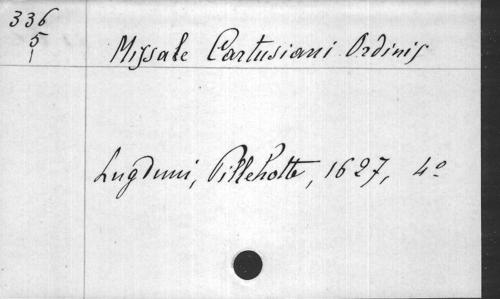 336
5
Missale Cartusiani Ordinis
Lugduni, Pillehotte, 1627, 4º